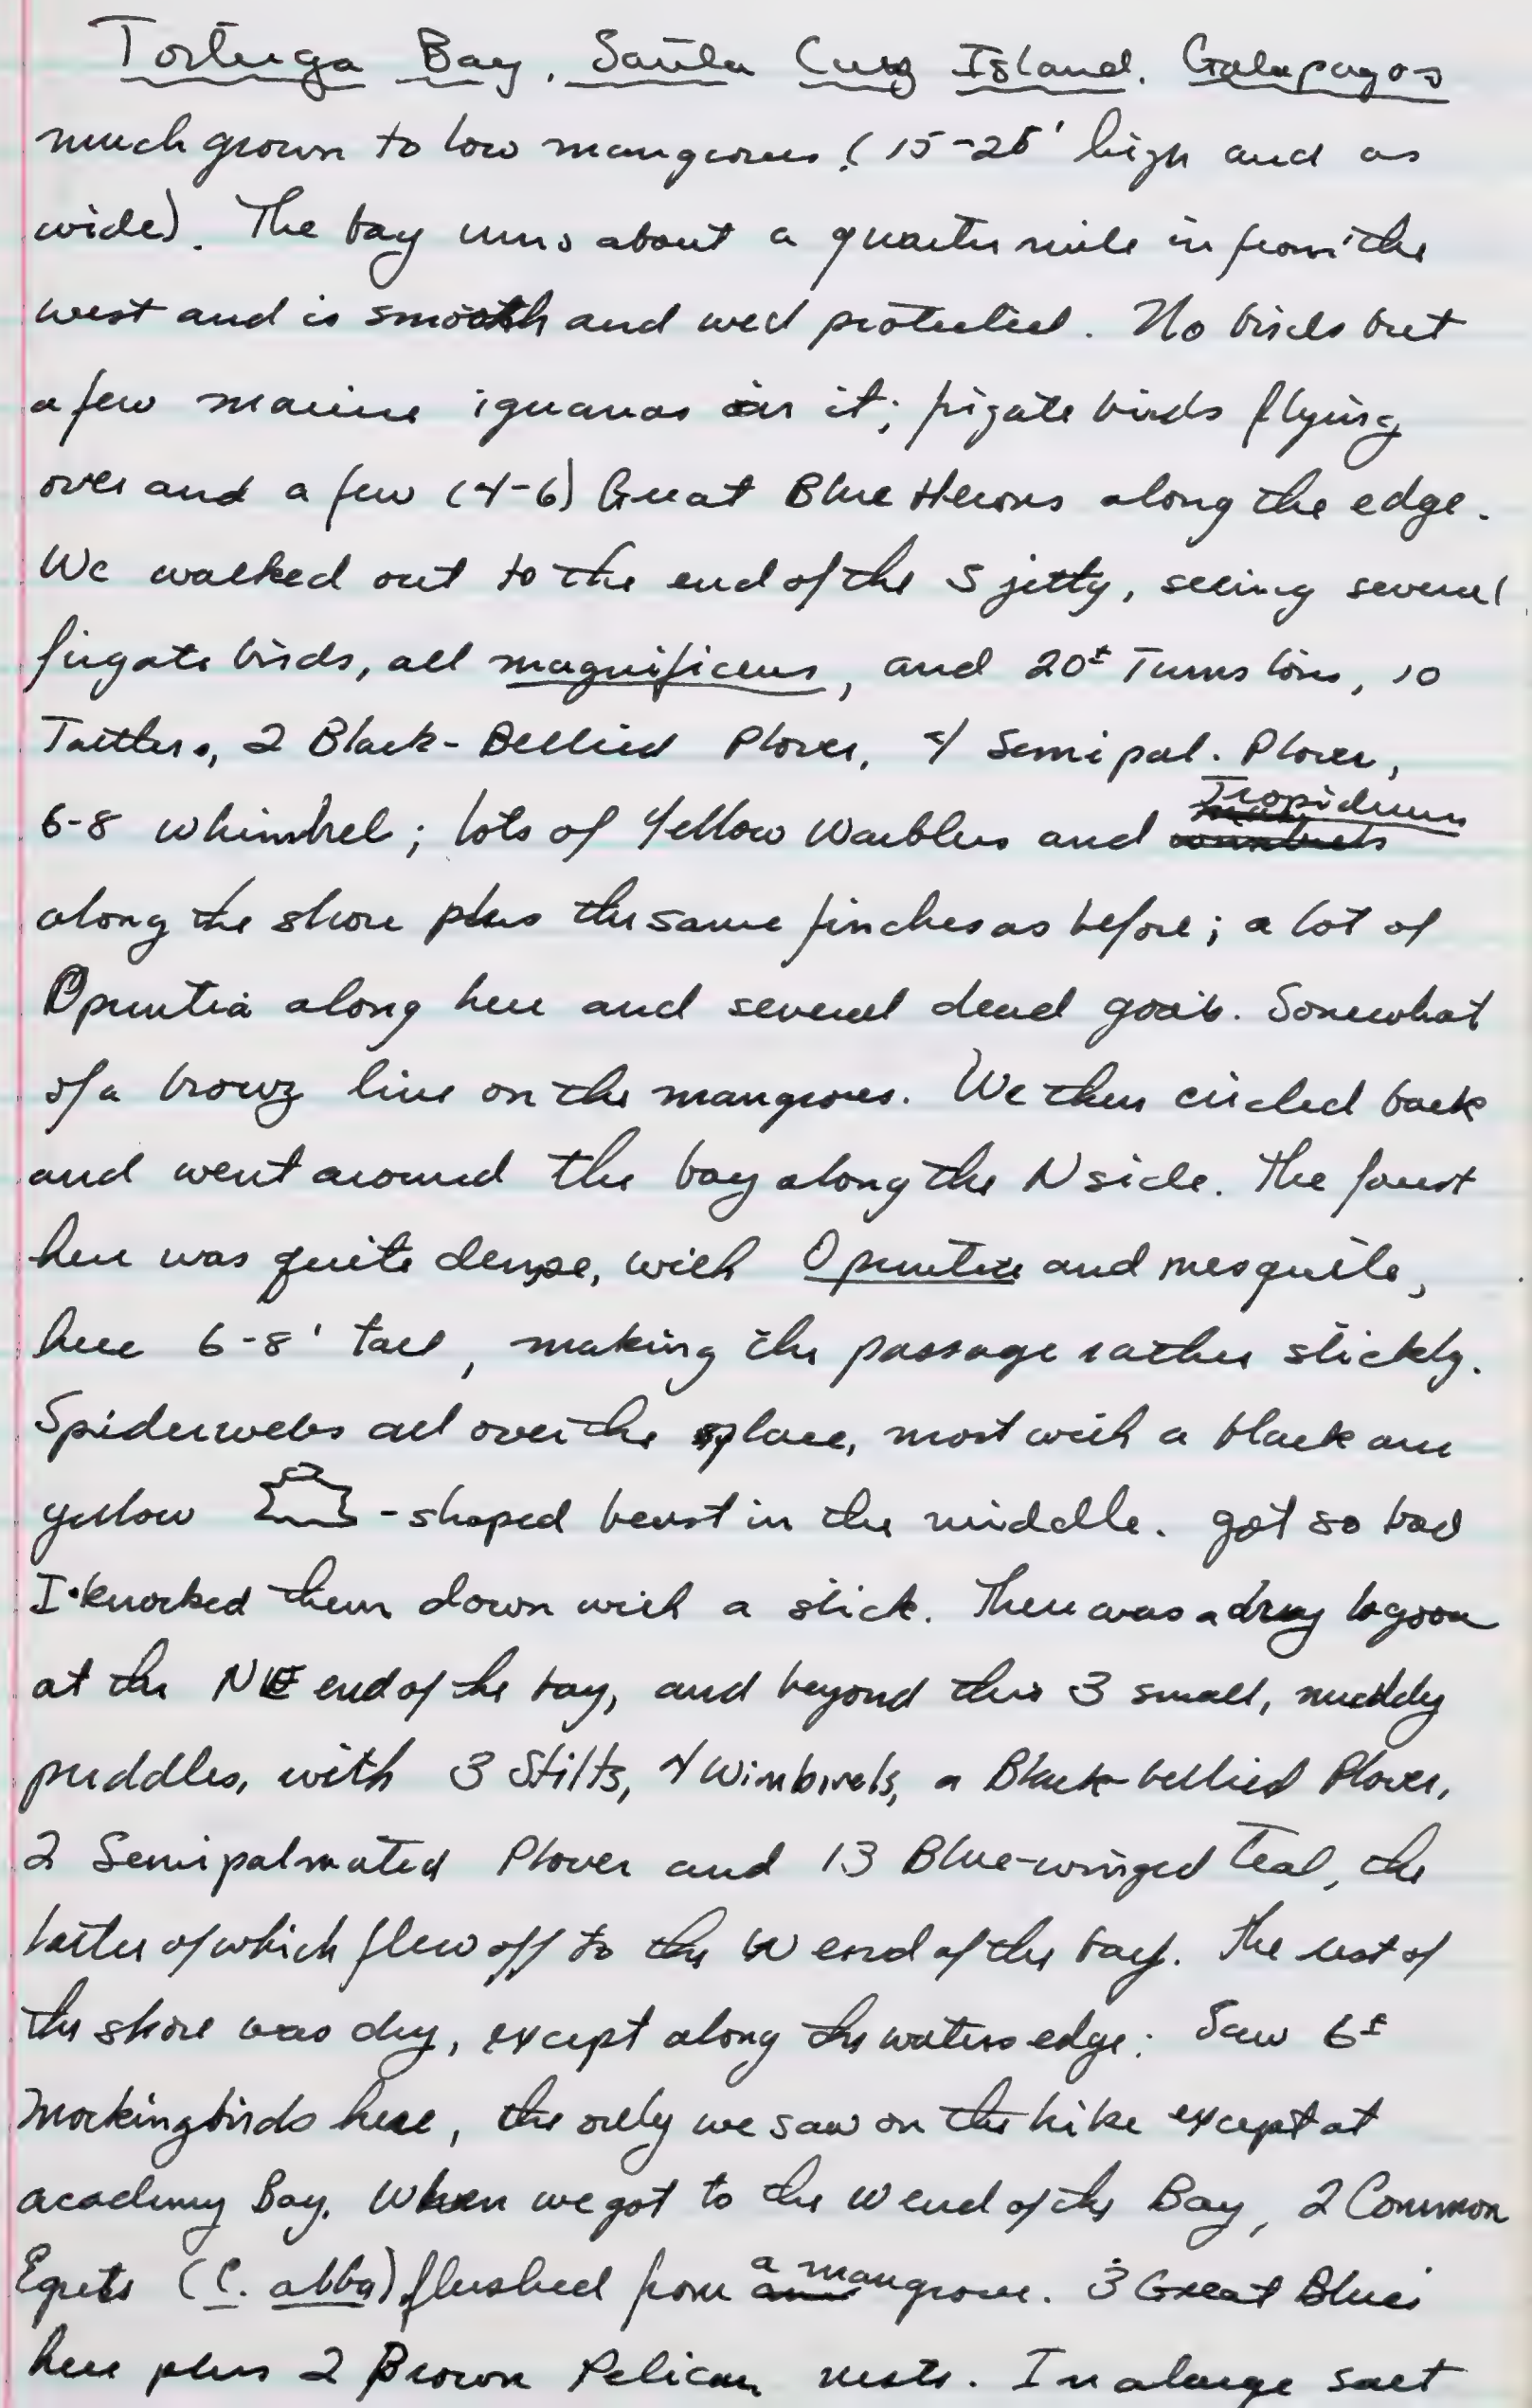 Tortuga Bay, Santa Cruz Island, Galapagos
much grown to low mangroves (15-25' high and as
wide). The bay runs about a quarter mile in from the
west and is smooth and well protected. No birds but
a few marine iguanas in it; frigate birds flying
over and a few (4-6) Great Blue Herons along the edge.
We walked out to the end of the S jetty, seeing several
frigate birds, all magnificens, and 20± Turnstones, 10
Tattlers, 2 Black-Bellied Plover, 4 Semipal. Plover,
6-8 whimbrel; lots of Yellow Warblers and Tropidurus
along the shore plus the same finches as before; a lot of
Opuntia along here and several dead goats. Somewhat
of a browz line on the mangroves. We then circled back
and went around the bay along the N side. The forest
here was quite dense, with Opuntia and mesquite,
here 6-8' tall, making the passage rather stickly.
Spiderwebs all over the place, most with a black and
yellow -shaped beast in the middle. got so bad
I knocked them down with a stick. There was a dry lagoon
at the NE end of the bay, and beyond this 3 small, muddy
puddles, with 3 Stilts, 4 Wimbrels, a Black-bellied Plover,
2 Semipalmated Plover and 13 Blue-winged Teal, the
latter of which flew off to the W end of the bay. The rest of
the shore was dry, except along the waters edge. Saw 6±
Mockingbirds here, the only we saw on the hike except at
academy Bay. When we got to the W end of the Bay, 2 Common
Egrets (C. alba) flushed from a mangrove. 3 Great Blues
here plus 2 Brown Pelican nests. In a large salt